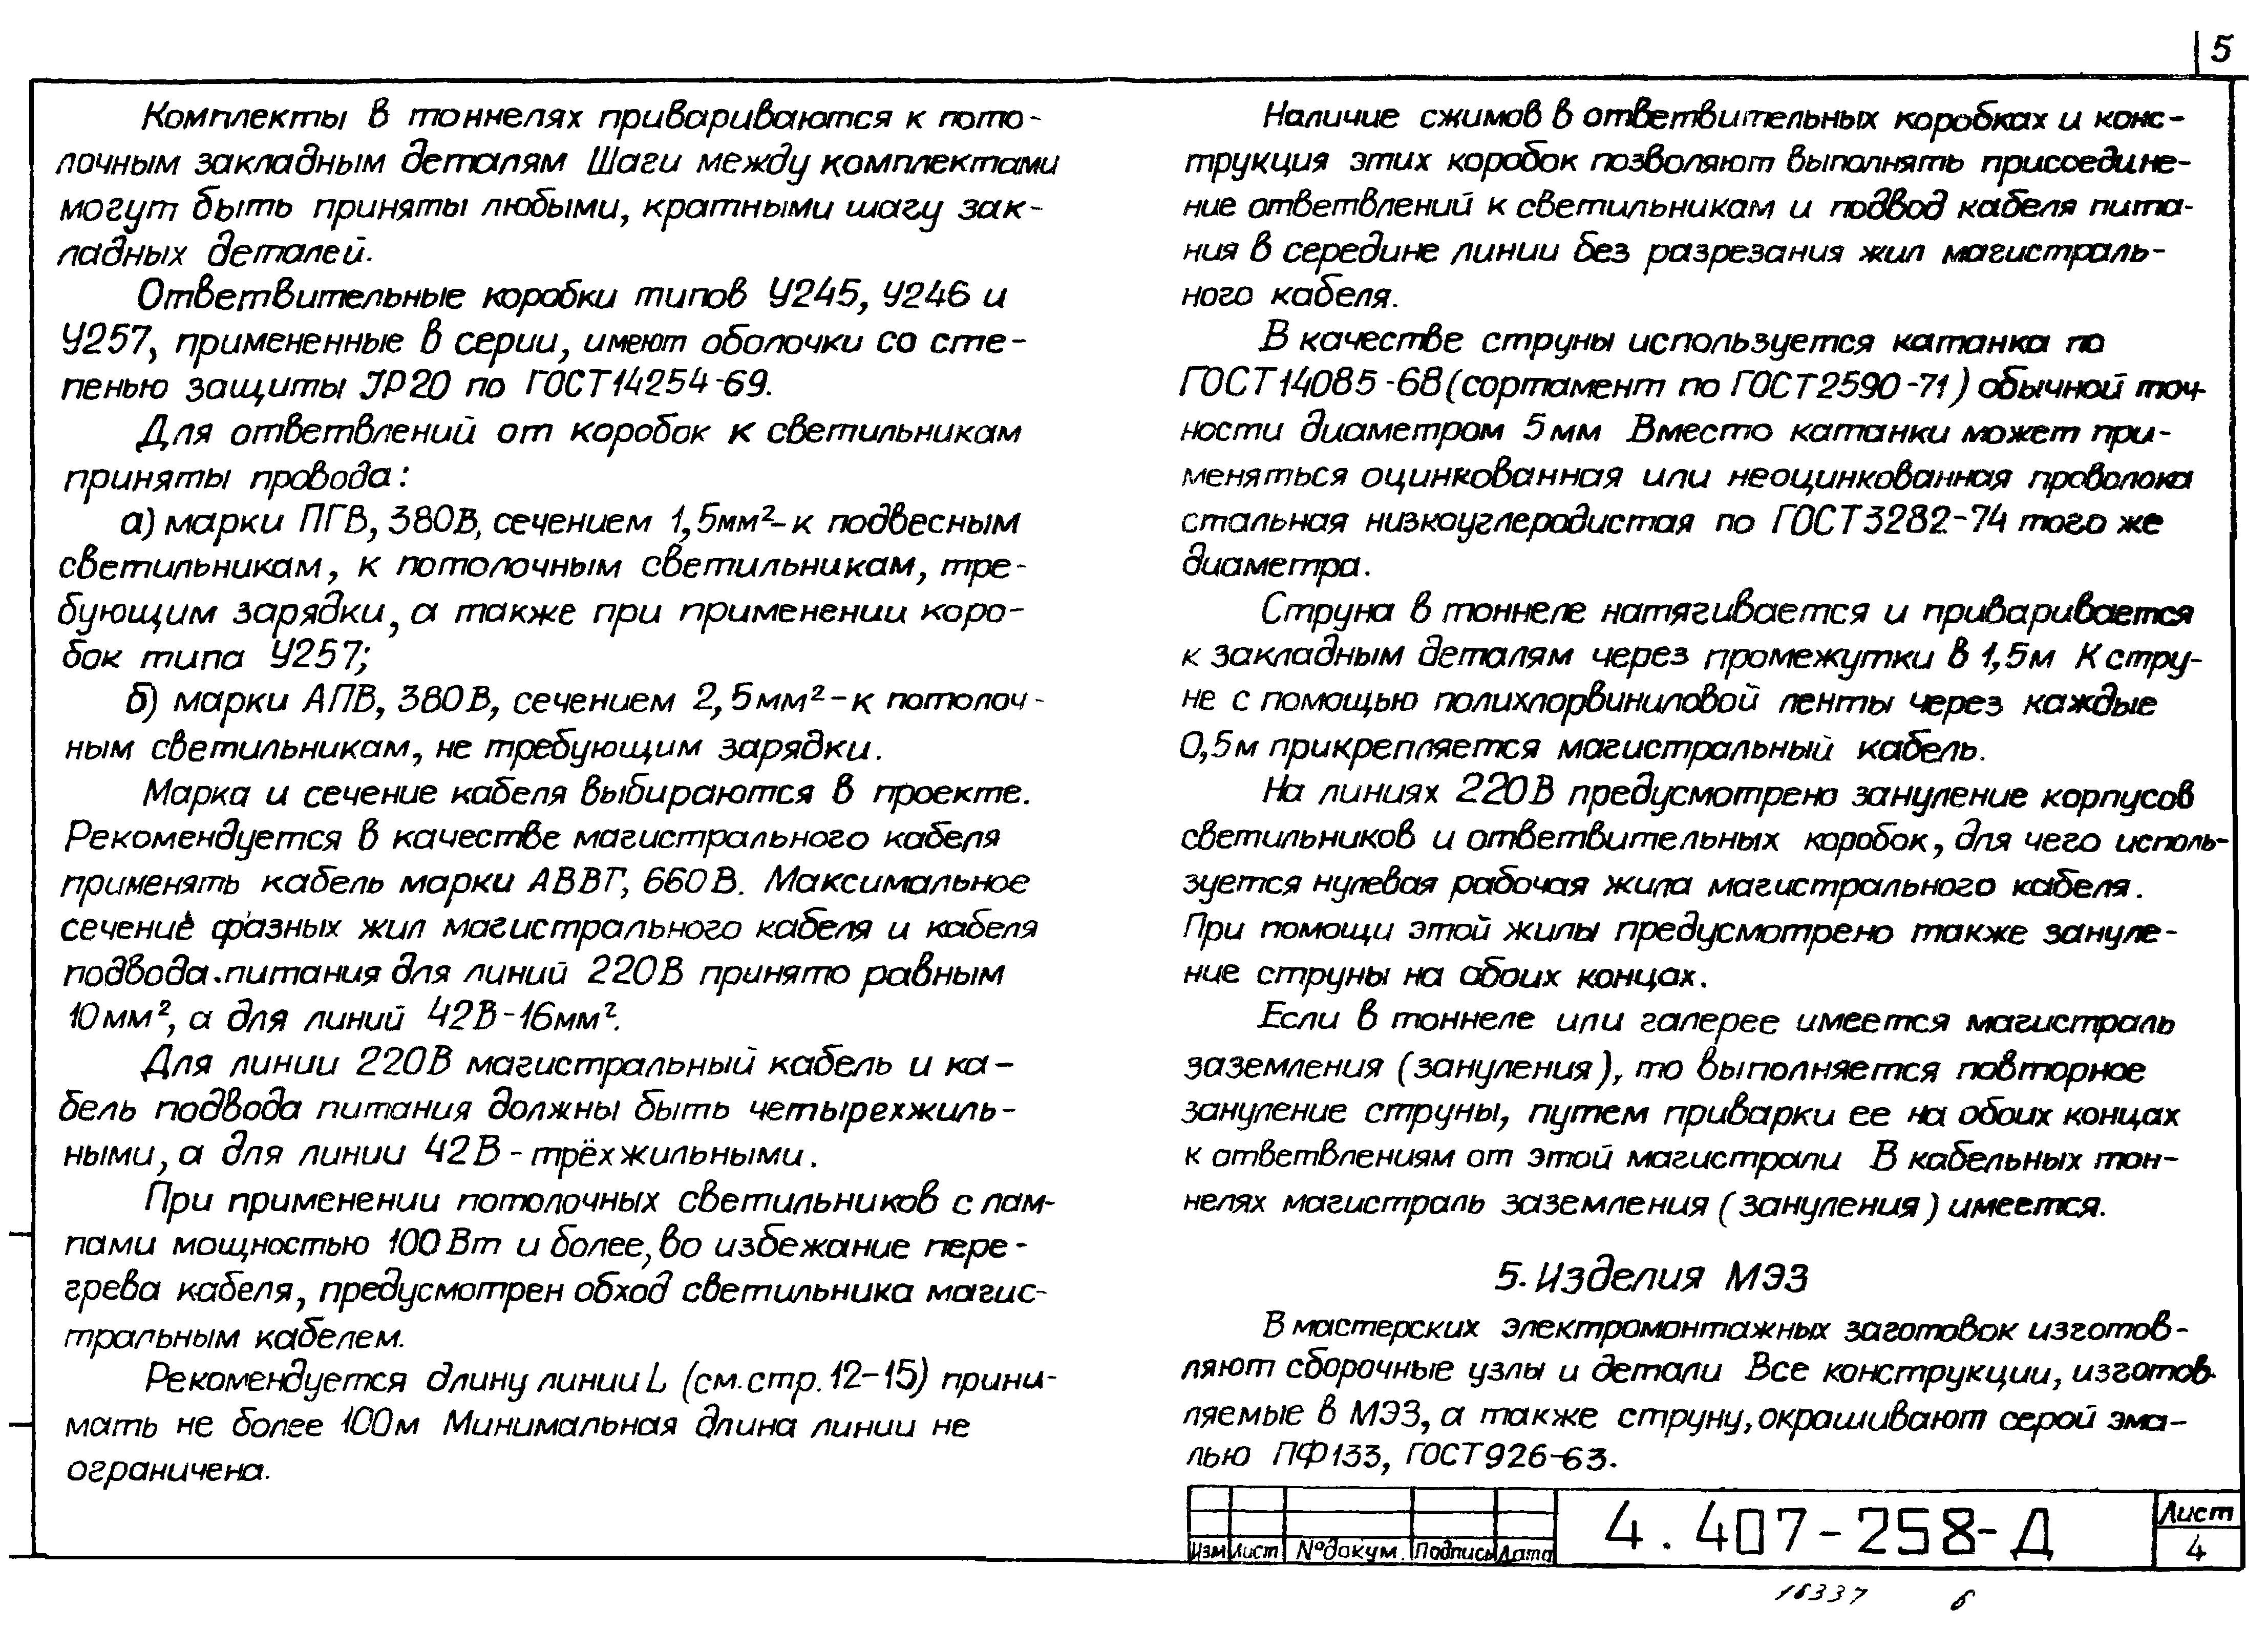 5
Комплекты в тоннелях привариваются к пото-
лочным закладным деталям Шаги между комплектами
могут быть приняты любыми, кратными шагу зак-
ладных деталей.
Ответвительные коробки типов У245, У246 и
У257, примененные в серии, имеют оболочки со сте-
пенью защиты JP20 по ГОСТ14254-69.
Для ответвлений от коробок к светильникам
приняты провода:
а) марки ПГВ, 380В, сечением 1,5мм²-к подвесным
светильникам, к потолочным светильникам, тре-
бующим зарядки, а также при применении коро-
бок типа У257;
б) марки АПВ, 380В, сечением 2,5мм²-к потолоч-
ным светильникам, не требующим зарядки.
Марка и сечение кабеля выбираются в проекте.
Рекомендуется в качестве магистрального кабеля
применять кабель марки АВВГ, 660В. Максимальное
сечение фазных жил магистрального кабеля и кабеля
подвода питания для линий 220В принято равным
10мм², а для линий 42В-16мм².
Для линии 220В магистральный кабель и ка-
бель подвода питания должны быть четырехжиль-
ными, а для линии 42В - трёхжильными.
При применении потолочных светильников с лам-
пами мощностью 100Вт и более, во избежание пере-
грева кабеля, предусмотрен обход светильника магис-
тральным кабелем.
Рекомендуется длину линии L (см.стр.12-15) прини-
мать не более 100м Минимальная длина линии не
ограничена.
Наличие сжимов в ответвительных коробках и конс-
трукция этих коробок позволяют выполнять присоедине-
ние ответвлений к светильникам и подвод кабеля пита-
ния в середине линии без разрезания жил магистраль-
ного кабеля.
В качестве струны используется катанка по
ГОСТ14085-68(сортамент по ГОСТ2590-71) обычной точ-
ности диаметром 5мм Вместо катанки может при-
меняться оцинкованная или неоцинкованная проволока
стальная низкоуглеродистая по ГОСТ3282-74 того же
диаметра.
Струна в тоннеле натягивается и приваривается
к закладным деталям через промежутки в 1,5м К стру-
не с помощью полихлорвиниловой ленты через каждые
0,5м прикрепляется магистральный кабель.
На линиях 220В предусмотрено зануление корпусов
светильников и ответвительных коробок, для чего исполь-
зуется нулевая рабочая жила магистрального кабеля.
При помощи этой жилы предусмотрено также зануле-
ние струны на обоих концах.
Если в тоннеле или галерее имеется магистраль
заземления (зануления), то выполняется повторное
зануление струны, путем приварки ее на обоих концах
к ответвлениям от этой магистрали В кабельных тон-
нелях магистраль заземления (зануления) имеется.
5. Изделия МЭЗ
В мастерских электромонтажных заготовок изготов-
ляют сборочные узлы и детали Все конструкции, изготов-
ляемые в МЭЗ, а также струну, окрашивают серой эма-
лью ПФ133, ГОСТ926-63.
Изм Лист №докум. Подпись Дата
4.407-258-Д
Лист
4
16337 6